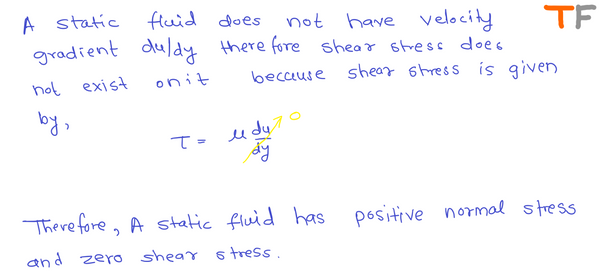 A static fluid does not have velocity TF
gradient du/dy therefore shear stress does
not exist on it because shear stress is given
by,
τ = μ du/dy 0
Therefore, A static fluid has positive normal stress
and zero shear stress.